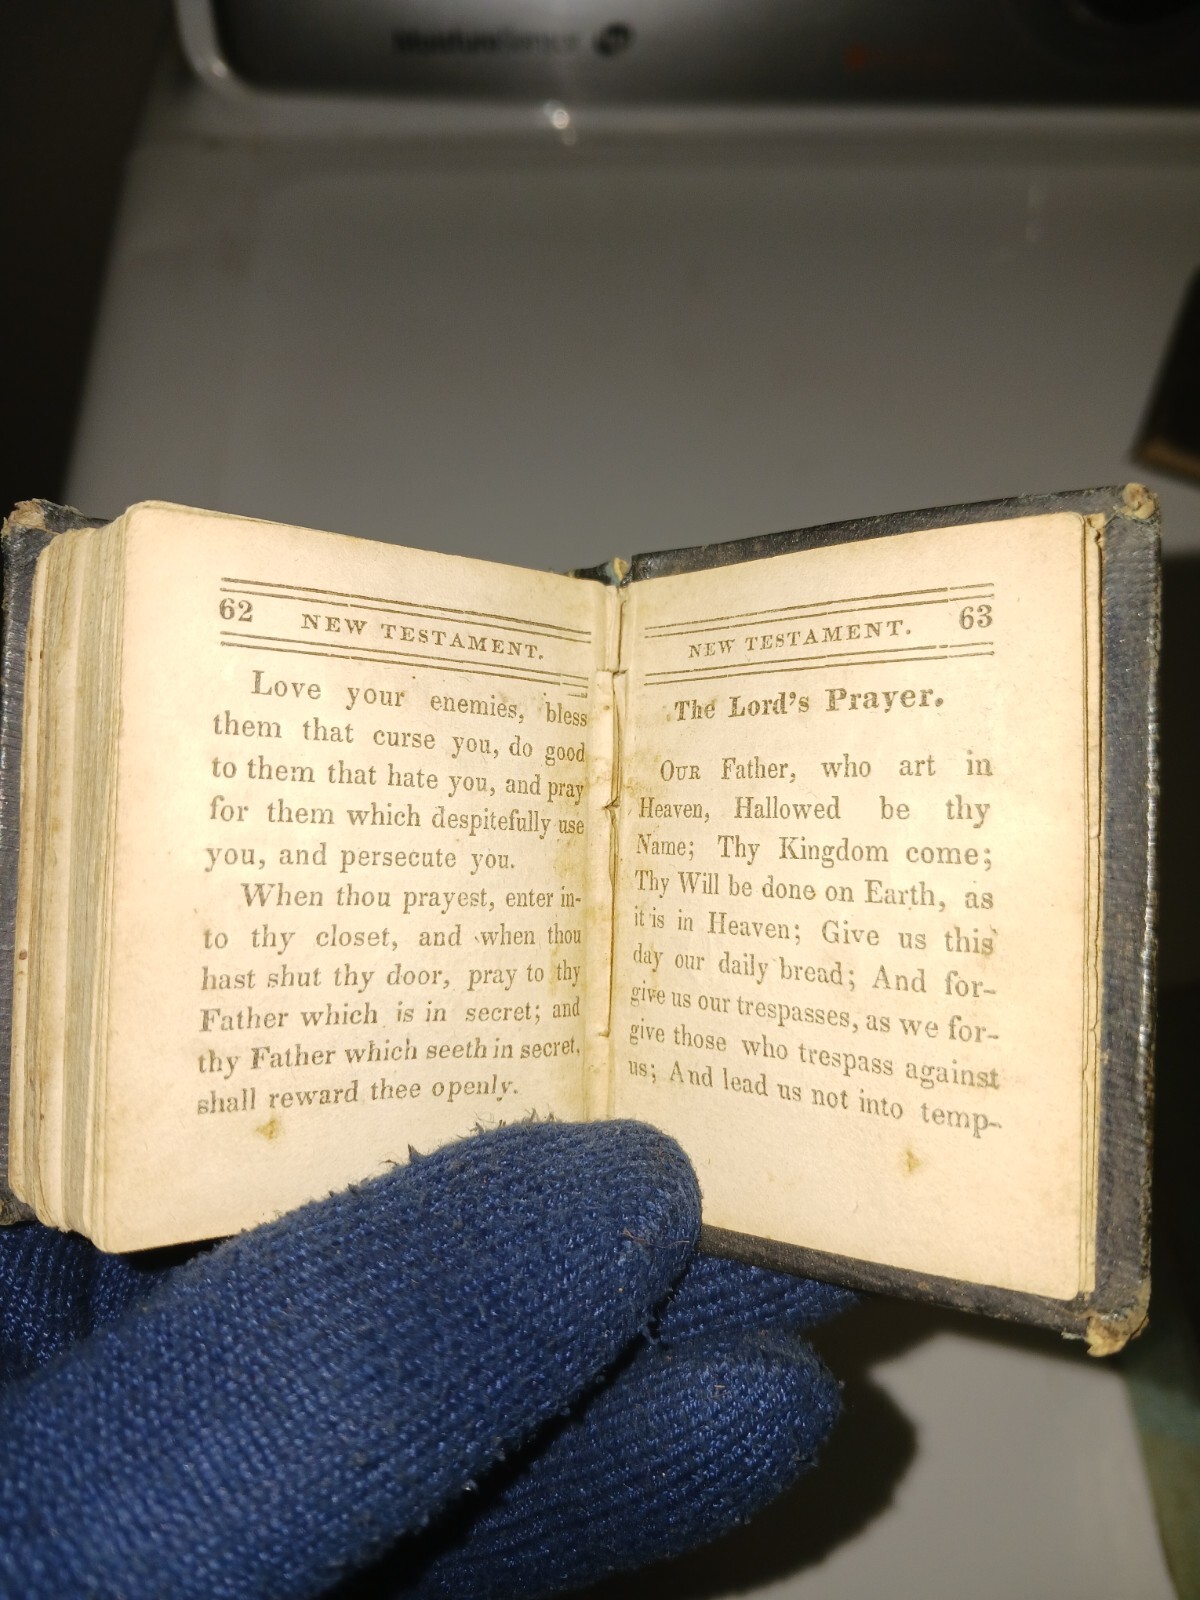 MoistureSensor
62 NEW TESTAMENT.
Love your enemies, bless
them that curse you, do good
to them that hate you, and pray
for them which despitefully use
you, and persecute you.
When thou prayest, enter in-
to thy closet, and when thou
hast shut thy door, pray to thy
Father which is in secret; and
thy Father which seeth in secret,
shall reward thee openly.
NEW TESTAMENT. 63
The Lord's Prayer.
OUR Father, who art in
Heaven, Hallowed be thy
Name; Thy Kingdom come;
Thy Will be done on Earth, as
it is in Heaven; Give us this
day our daily bread; And for-
give us our trespasses, as we for-
give those who trespass against
us; And lead us not into temp-